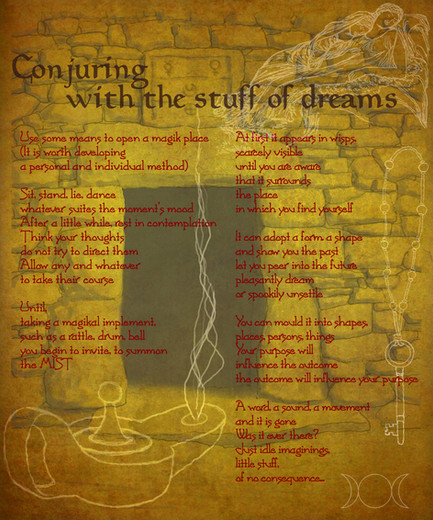 Conjuring
with the stuff of dreams
Use some means to open a magik place
(It is worth developing
a personal and individual method)
Sit, stand, lie, dance
whatever suites the moment's mood
After a little while, rest in contemplation
Think your thoughts
do not try to direct them
Allow any and whatever
to take their course
Until
taking a magikal implement,
such as a rattle, drum, bell
you begin to invite, to summon
the MIST
At first it appears in wisps,
scarcely visible
until you are aware
that it surrounds
the place
in which you find yourself
It can adopt a form, a shape
and show you the past
let you peer into the future
pleasantly dream
or spookily unsettle
You can mould it into shapes,
places, persons, things
Your purpose will
influence the outcome
the outcome will influence your purpose
A word, a sound, a movement
and it is gone
Was it ever there?
Just idle imaginings,
little stuff,
of no consequence...